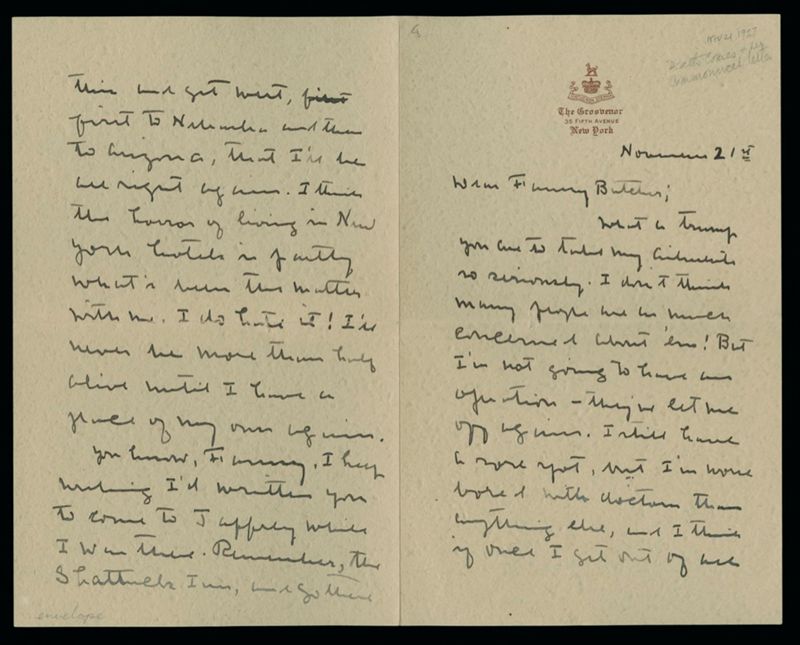 The Grosvenor
35 Fifth Avenue
New York
November 21st
Dear Fanny Butcher;
What a trump
you are to take my ailments
so seriously. I don't think
many people are as much
concerned about 'em! But
I'm not going to have an
operation - they've let me
off again. I still have
a sore spot, but I'm more
bored with doctors than
anything else, and I think
if once I get out of all
this and get west, first
first to Nebraska and then
to Arizona, that I'll be
all right again. I think
the horror of living in New
York hotels is partly
what's been the matter
with me. I do hate it! I'll
never be more than half
alive until I have a
place of my own again.
You know, Fanny, I keep
wishing I'd written you
to come to Jaffrey while
I was there. Remember, the
Shattuck Inn, and go there
envelope